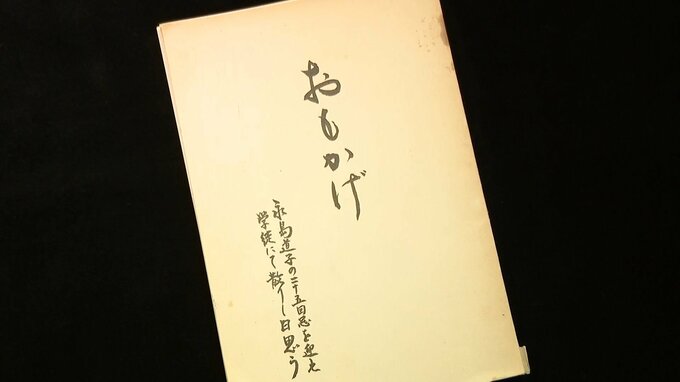 おもかげ
永島道子の二十五回忌を迎え
学徒にて散りし日思う